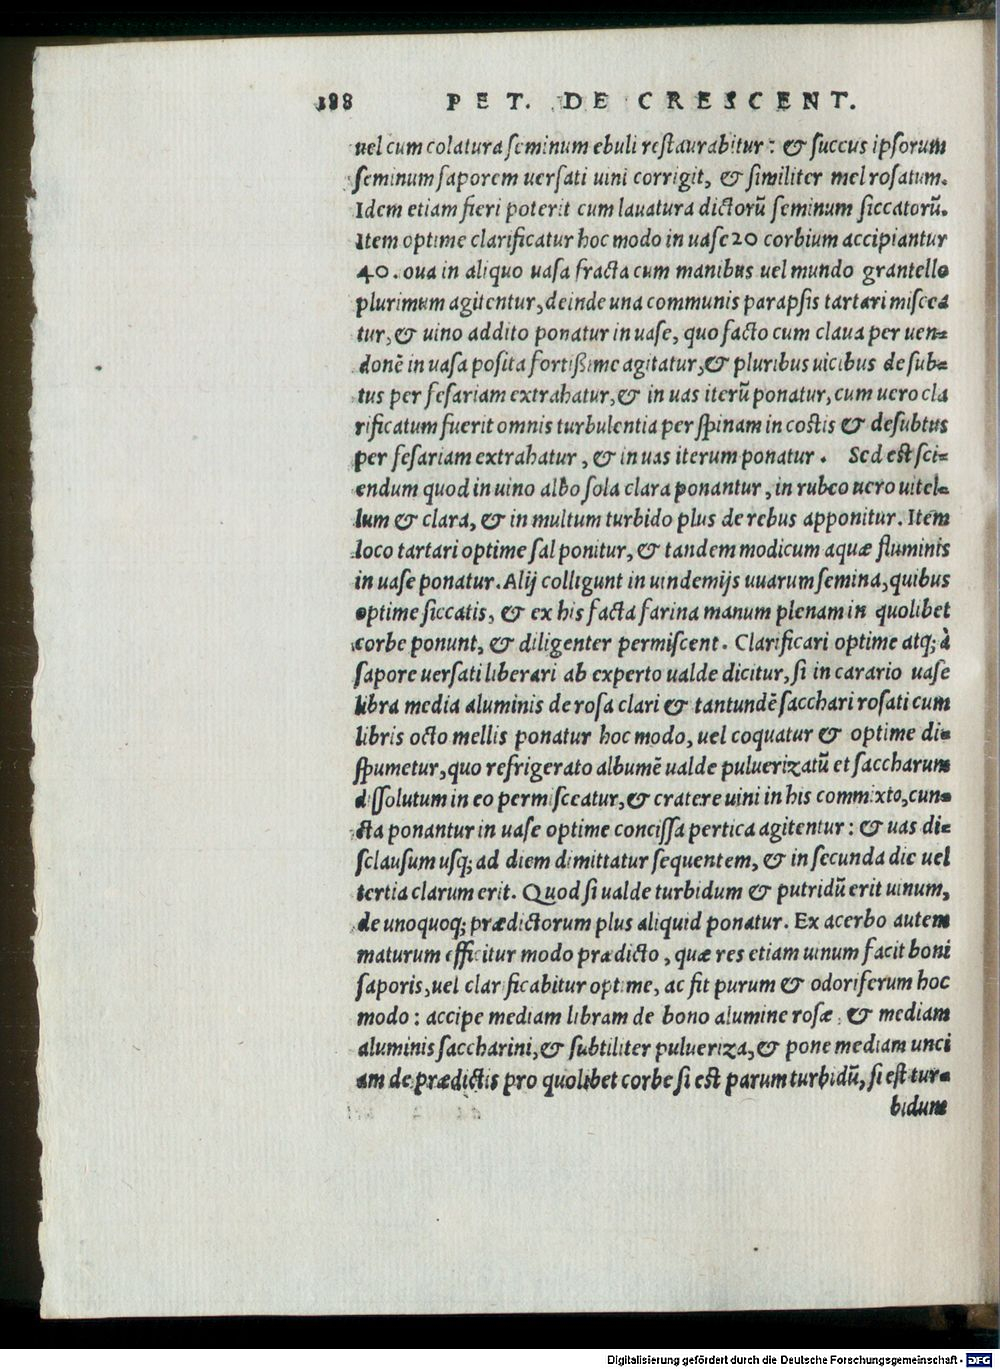 188 PET. DE CRESCENT.
uel cum colatura seminum ebuli restaurabitur: & succus ipsorum
seminum saporem uersati uini corrigit, & similiter mel rosatum.
Idem etiam fieri poterit cum lauatura dictorũ seminum siccatorũ.
Item optime clarificatur hoc modo in uase 20 corbium accipiantur
40. oua in aliquo uasa fracta cum manibus uel mundo grantello
plurimum agitentur, deinde una communis parapsis tartari miscea
tur, & uino addito ponatur in uase, quo facto cum claua per uen-
donẽ in uasa posita fortißime agitatur, & pluribus uicibus de sub-
tus per fesariam extrahatur, & in uas iterũ ponatur, cum uero cla
rificatum fuerit omnis turbulentia per spinam in costis & desubtus
per fesariam extrahatur, & in uas iterum ponatur. Sed est sci-
endum quod in uino albo sola clara ponantur, in rubeo uero uitel-
lum & clara, & in multum turbido plus de rebus apponitur. Item
loco tartari optime sal ponitur, & tandem modicum aquæ fluminis
in uase ponatur. Alij colligunt in uindemijs uuarum semina, quibus
optime siccatis, & ex his facta farina manum plenam in quolibet
corbe ponunt, & diligenter permiscent. Clarificari optime atq; à
sapore uersati liberari ab experto ualde dicitur, si in carario uase
libra media aluminis de rosa clari & tantundẽ sacchari rosati cum
libris octo mellis ponatur hoc modo, uel coquatur & optime di-
spumetur, quo refrigerato albumẽ ualde puluerizatũ et saccharum
dissolutum in eo permisceatur, & cratere uini in his commixto, cun-
cta ponantur in uase optime concissa pertica agitentur: & uas di-
sclausum usq; ad diem dimittatur sequentem, & in secunda die uel
tertia clarum erit. Quod si ualde turbidum & putridũ erit uinum,
de unoquoq; prædictorum plus aliquid ponatur. Ex acerbo autem
maturum efficitur modo prædicto, quæ res etiam uinum facit boni
saporis, uel clarificabitur optime, ac fit purum & odoriferum hoc
modo: accipe mediam libram de bono alumine rosæ, & mediam
aluminis saccharini, & subtiliter pulueriza, & pone mediam unci
am de prædictis pro quolibet corbe si est parum turbidũ, si est tur-
bidum
Digitalisierung gefördert durch die Deutsche Forschungsgemeinschaft - DFG